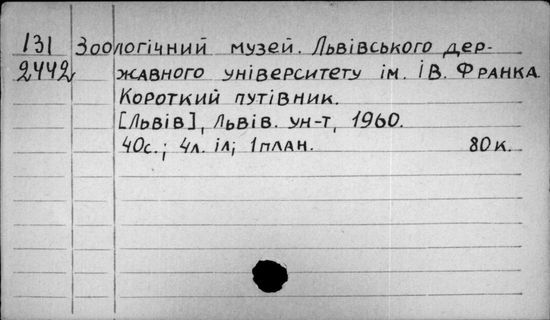 131 Зоологічний музей. Львівського дер-
2442 жавного університету ім. Ів. Франка.
Короткий путівник.
[Львів], Львів. ун-т, 1960.
40с.; 4л. іл; 1план. 80к.